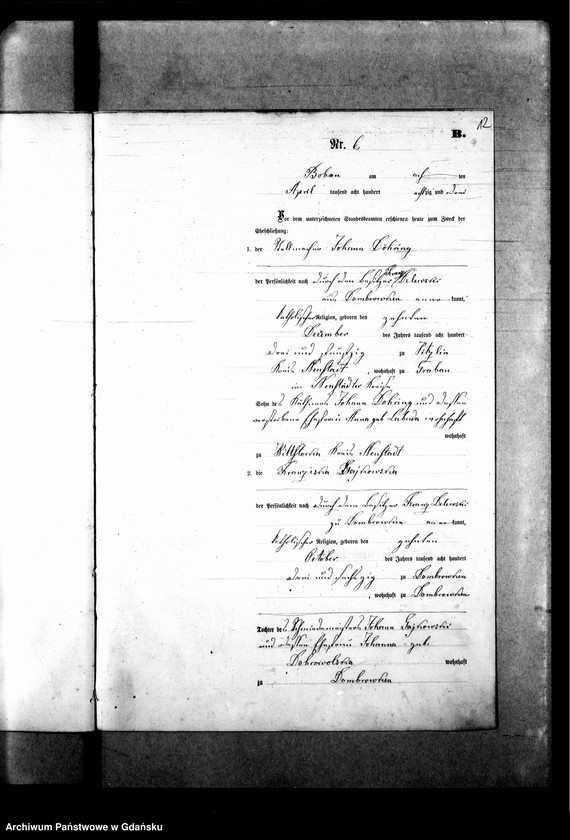 12
B.
Nr. 6.
Boban am acht ten
April tausend acht hundert achtzig und drei
Vor dem unterzeichneten Standesbeamten erschienen heute zum Zweck der
Eheschließung:
1. der Stellmacher Johann Döhring
der Persönlichkeit nach durch den Besitzer Franz Belewski
aus Dombrowken anerkannt,
katholischer Religion, geboren den zehnten
December des Jahres tausend acht hundert
drei und fünfzig zu
Kreis Neustadt, wohnhaft zu Grabau
im Neustädter Kreise
Sohn des Käthners Johann Döhring und dessen
verstorbene Ehefrau Anna geb. wohnhaft
wohnhaft
zu Kreis Neustadt
2. die Franziska Gajkowska
der Persönlichkeit nach durch dem Besitzer Franz Belewski
zu Dombrowken anerkannt,
katholischer Religion, geboren den zehnten
October des Jahres tausend acht hundert
drei und sechszig zu Dombrowken
, wohnhaft zu Dombrowken
Tochter des Schmiedemeisters Johann Gajkowski
und dessen Ehefrau Johanna geb.
Dobrowolska wohnhaft
zu Dombrowken
Archiwum Państwowe w Gdańsku